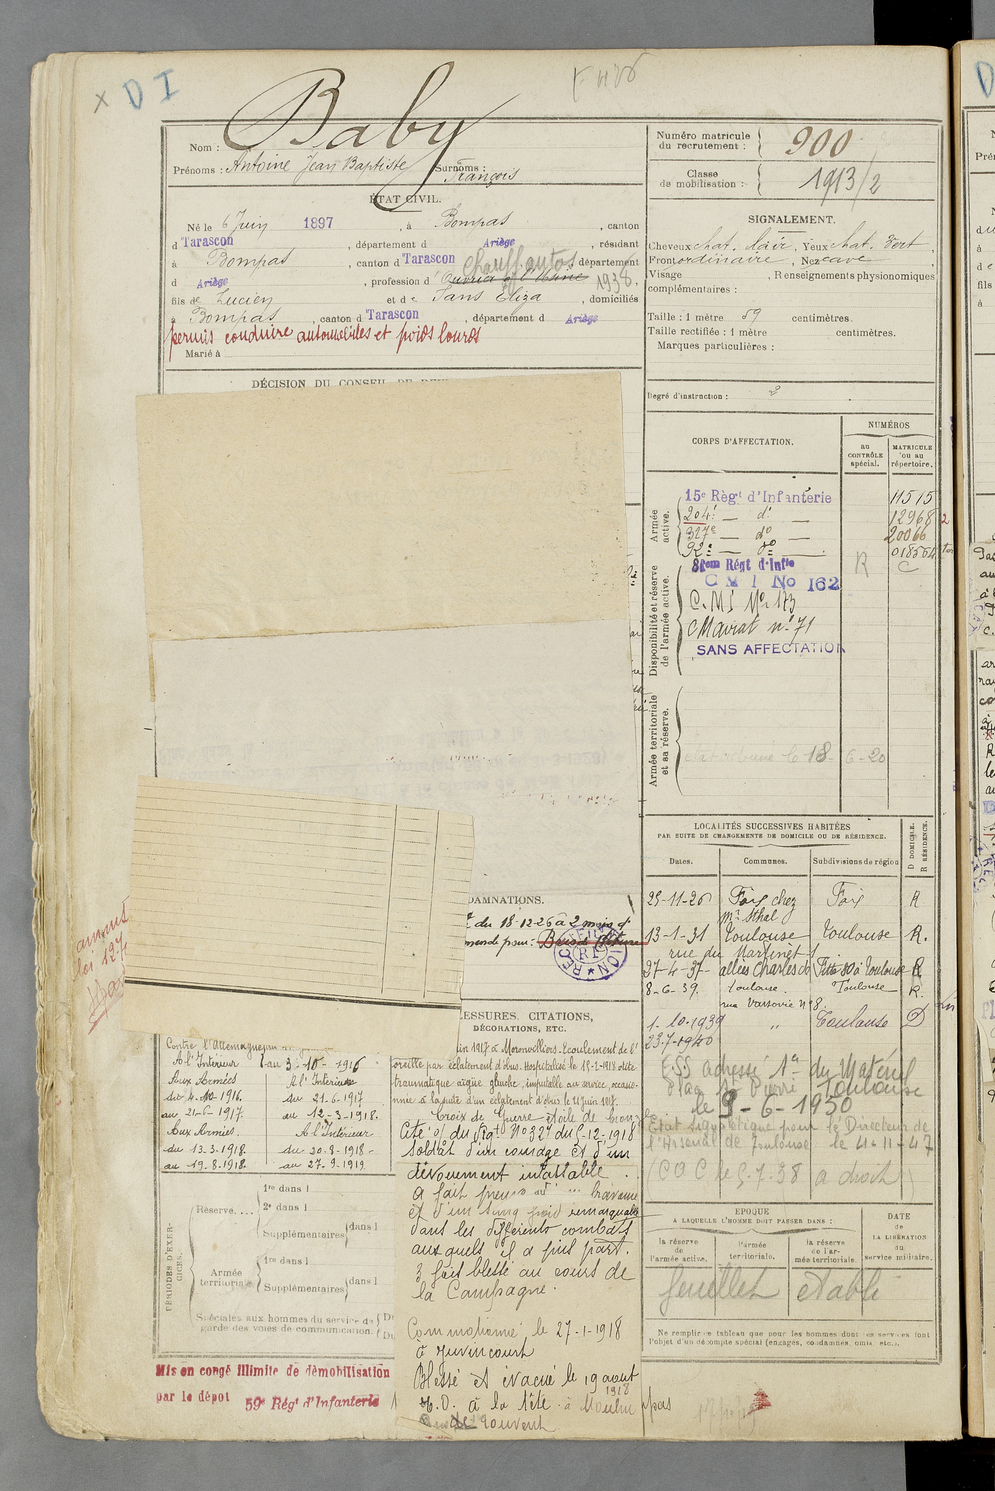 x D I
Baby
Nom :
Prénoms : Antoine Jean Baptiste Surnoms : François
ÉTAT CIVIL.
Né le 6 Juin 1897, à Bompas, canton
d Tarascon, département d Ariège, résidant
à Bompas, canton d Tarascon, département
Chauff. autos 1938.
d Ariège, profession d' Ouvrier
fils de Lucien et de Sans Eliza, domiciliés
à Bompas, canton d Tarascon, département d Ariège
permis conduire automobiles et poids lourds
Marié à
DÉCISION DU CONSEIL DE
Numéro matricule du recrutement : 900
Classe de mobilisation : 1913/2
SIGNALEMENT.
Cheveux chat. clair, Yeux chat. vert,
Front ordinaire, Nez cave,
Visage , Renseignements physionomiques
complémentaires :
Taille : 1 mètre 59 centimètres.
Taille rectifiée : 1 mètre centimètres.
Marques particulières :
Degré d'instruction : 2
CORPS D'AFFECTATION.
NUMÉROS
au CONTRÔLE spécial.
MATRICULE ou au répertoire.
Armée active.
15e Régt d'Infanterie 11515
204e — do — 12968
327e — do — 20066
92e — do — 018554
Disponibilité et réserve de l'armée active.
R C
Régt d'Infie
C M I No 162
C.M I No 173
No 71
SANS AFFECTATION
Armée territoriale et sa réserve.
le 18-6-20
LOCALITÉS SUCCESSIVES HABITÉES
PAR SUITE DE CHANGEMENTS DE DOMICILE OU DE RÉSIDENCE.
Dates.
Communes.
Subdivisions de région
D DOMICILE.
R RÉSIDENCE.
25-11-26 Foix chez Foix R
Mr Sthal
13-1-31 Toulouse Toulouse R.
rue du Martinet
27-4-37- allées Charles de Fitte 80 à Toulouse R
8-6-39. Toulouse. Toulouse R.
rue Varsovie No 8.
1. 10-1939 " Toulouse D
23-7-1940
adresse du Matériel
St Pierre Toulouse
le 9-6-1950
Etat signalétique pour le Directeur de
l'Arsenal de Toulouse le 4-11-47
amnist
loi
DAMNATIONS.
du 18-12-26 à 2 mois d'
amende pour :
RECRUTEMENT
BLESSURES, CITATIONS,
DÉCORATIONS, ETC.
Contre l'Allemagne
A l'Intérieur au 3-10-1916
Aux Armées A l'Intérieur
du 4-10-1916. du 21-6-1917
au 21-6-1917. au 12-3-1918.
Aux Armées A l'Intérieur
du 13.3.1918. du 20-8-1918-
au 19.8.1918 au 27-9-1919.
juin 1917 à Moronvilliers. Ecoulement de l'
oreille par éclatement d'obus. Hospitalisé le 15-2-1918 otite
traumatique aigüe gauche, imputable au service, occasion-
née à la suite d'un éclatement d'obus le 11 juin 1917.
Croix de Guerre étoile de bronze
Cité o/ du Rgt No 327 du 5-12-1918
Soldat d'un courage et d'un
dévouement inlassable.
a fait preuve de bravoure
et d'un sang froid remarquable
dans les différents combats
auxquels il a pris part.
3 fois blessé au cours de
la Campagne.
Commotionné le 27-1-1918
à Juvincourt
Blessé et évacué le 19 août
1918
E.O. à la tête à Moulin
touvent
PÉRIODES D'EXERCICES.
Réserve....
1re dans l
2e dans l
Supplémentaires dans l
Armée territoriale
1re dans l
Supplémentaires dans l
Spéciales aux hommes du service de
garde des voies de communication.
EPOQUE
A LAQUELLE L'HOMME DOIT PASSER DANS :
la réserve de l'armée active.
l'armée territoriale.
la réserve de l'armée territoriale.
DATE de LA LIBÉRATION du service militaire.
feuillet établi
Ne remplir ce tableau que pour les hommes dont les services font
l'objet d'un décompte spécial (engagés, condamnés, omis, etc.).
Mis en congé illimité de démobilisation
par le dépôt 59e Régt d'Infanterie